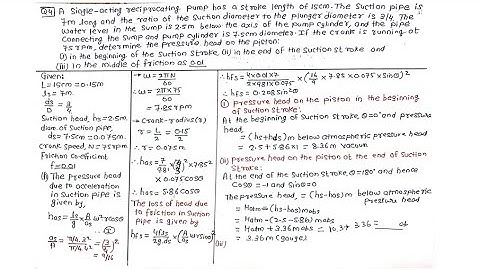 Q4) A Single-acting reciprocating pump has a stroke length of 15cm. The Suction pipe is
7m long and the ratio of the Suction diameter to the plunger diameter is 3/4. The
Water level in the Sump is 2.5m below the axis of the pump cylinder, and the pipe
Connecting the Sump and pump cylinder is 7.5cm diameter. If the Crank is running at
75 rpm, determine the pressure head on the piston:
(i) in the beginning of Suction Stroke (ii) in the end of Suction Stroke and
(iii) in the middle of friction as 0.01
Given:
L=15cm=0.15m
ls=7m.
ds/D = 3/4
Suction head, hs=2.5m
diam. of Suction pipe,
ds=7.5cm=0.075m.
Crank speed, N=75rpm
Friction coefficient
f=0.01
(I) The pressure head
due to acceleration
in Suction pipe is
given by
has = ls/g × A/as ω²rcosθ
as/A = π/4.3²/π/4.4² = (3/4)²
= 9/16
→ ω = 2πN/60
∴ ω = 2π×75/60
= 7.85 rps
→ Crank-radius(r)
r = L/2 = 0.15/2
∴ r = 0.075m
∴ has = 7/9.81 × (4/3)² × 7.85²
× 0.075cosθ
∴ has = 5.86cosθ
The loss of head
due to friction in Suction
pipe is given by
hfs = 4fls/2g.ds × (A/as ωrsinθ)²
∴ hfs = 4×0.01×7/2×9.81×0.075 × (16/9 × 7.85×0.075×sinθ)²
∴ hfs = 0.208sin²θ
(i) pressure head on the piston in the beginning
of Suction Stroke:
At the beginning of Suction Stroke, θ=0° and pressure
head,
= (hs+has) m below atmospheric pressure head
= 2.5+5.86 = 8.36m vacuum
(ii) pressure head on the piston at the end of Suction
Stroke:
At the end of the Suction Stroke, θ=180° and hence
Cosθ = -1 and Sinθ=0
The pressure head, = (hs-has)m below atmospheric
pressure head
= Hatm-(hs-has) mabs
= Hatm-(2.5-5.86) mabs
= Hatm+3.36 mabs = 10.3+3.36=
= 3.36m (gauge)
(iii)